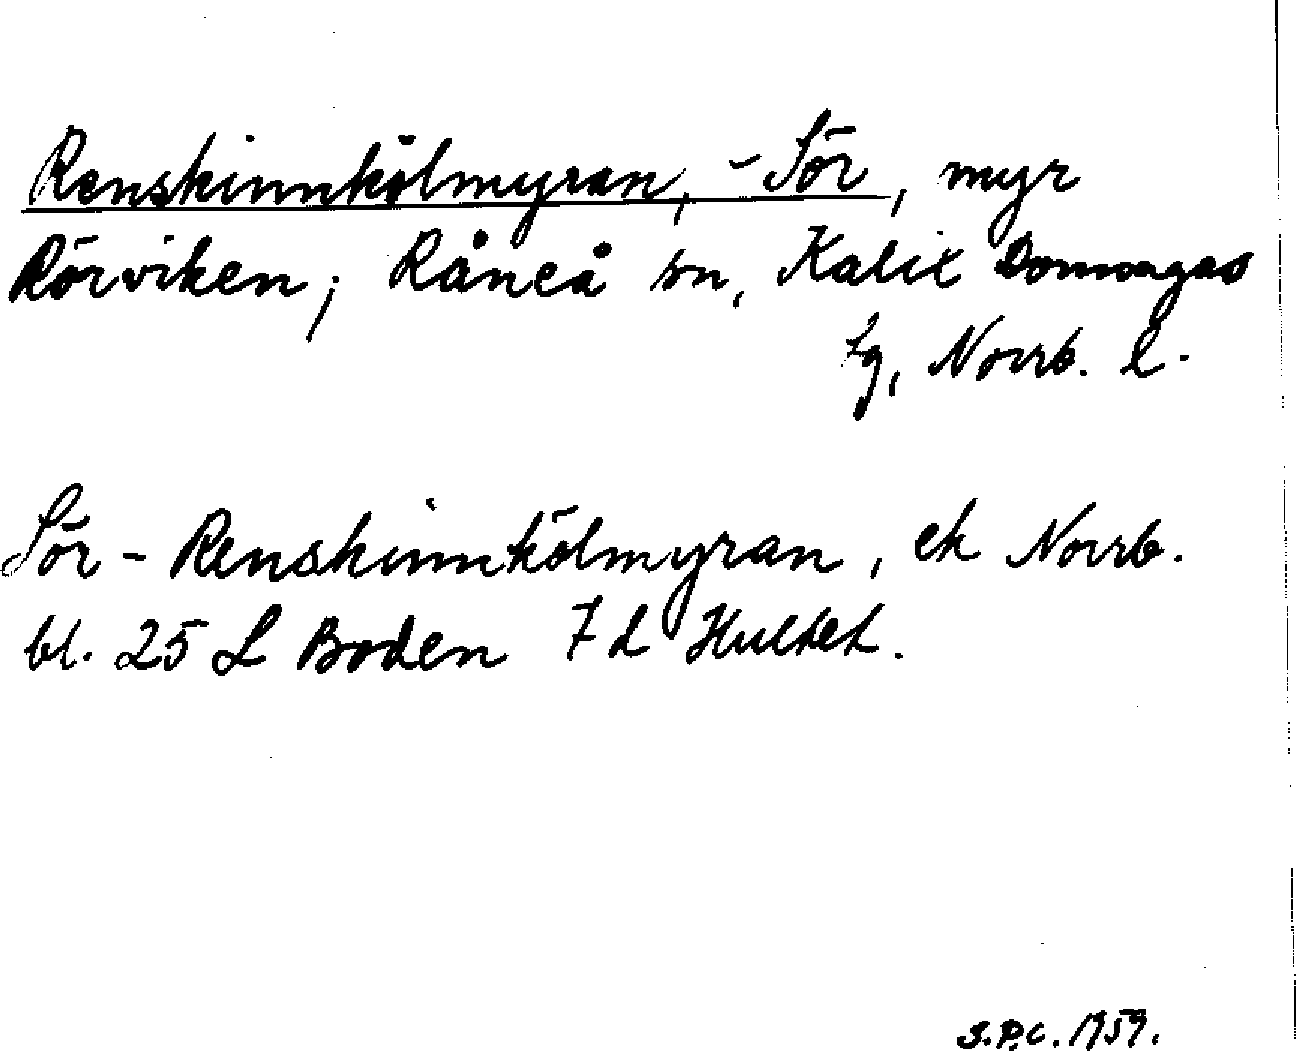 Renskinnkölmyran, - Sör, myr
Rörviken; Råneå sn, Kalix Domsagas
tg, Norrb. l.
Sör - Renskinnkölmyran, ek Norrb.
bl. 25 L Boden 7 d Hultet.
S.P.C. 1959.